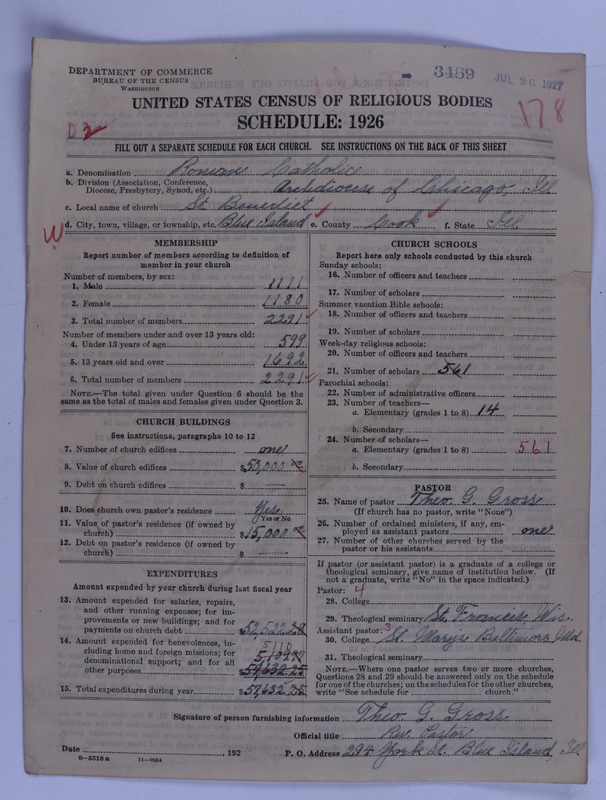 DEPARTMENT OF COMMERCE
BUREAU OF THE CENSUS
WASHINGTON
3489
JUL 26 1927
178
D2
UNITED STATES CENSUS OF RELIGIOUS BODIES
SCHEDULE: 1926
FILL OUT A SEPARATE SCHEDULE FOR EACH CHURCH. SEE INSTRUCTIONS ON THE BACK OF THIS SHEET
a. Denomination Roman Catholic
b. Division (Association, Conference, Diocese, Presbytery, Synod, etc.) Archdiocese of Chicago, Ill
c. Local name of church St. Benedict
d. City, town, village, or township, etc. Blue Island e. County Cook f. State Ill.
MEMBERSHIP
Report number of members according to definition of
member in your church
Number of members, by sex:
1. Male 1111
2. Female 1180
3. Total number of members 2291
Number of members under and over 13 years old:
4. Under 13 years of age 599
5. 13 years old and over 1692
6. Total number of members 2291
NOTE.—The total given under Question 6 should be the
same as the total of males and females given under Question 3.
CHURCH BUILDINGS
See instructions, paragraphs 10 to 12
7. Number of church edifices one
8. Value of church edifices $50,000
9. Debt on church edifices $ —
10. Does church own pastor's residence Yes
Yes or No
11. Value of pastor's residence (if owned by
church) $15,000
12. Debt on pastor's residence (if owned by
church) $ —
EXPENDITURES
Amount expended by your church during last fiscal year
13. Amount expended for salaries, repairs,
and other running expenses; for im-
provements or new buildings; and for
payments on church debt
14. Amount expended for benevolences, in-
cluding home and foreign missions; for
denominational support; and for all
other purposes
15. Total expenditures during year
CHURCH SCHOOLS
Report here only schools conducted by this church
Sunday schools:
16. Number of officers and teachers
17. Number of scholars
Summer vacation Bible schools:
18. Number of officers and teachers
19. Number of scholars
Week-day religious schools:
20. Number of officers and teachers
21. Number of scholars 561
Parochial schools:
22. Number of administrative officers
23. Number of teachers—
a. Elementary (grades 1 to 8) 14
b. Secondary
24. Number of scholars—
a. Elementary (grades 1 to 8) 561
b. Secondary
PASTOR
25. Name of pastor Theo. G. Gross
(If church has no pastor, write "None")
26. Number of ordained ministers, if any, em-
ployed as assistant pastors one
27. Number of other churches served by the
pastor or his assistants
If pastor (or assistant pastor) is a graduate of a college or
theological seminary, give name of institution below. (If
not a graduate, write "No" in the space indicated.)
Pastor: 4
28. College
29. Theological seminary St. Francis, Wis.
Assistant pastor: 3
30. College St. Marys Baltimore Md
31. Theological seminary
NOTE.—Where one pastor serves two or more churches,
Questions 28 and 29 should be answered only on the schedule
for one of the churches; on the schedules for the other churches,
write "See schedule for church."
Signature of person furnishing information Theo. G. Gross
Official title Rev. Pastor
Date , 192
P. O. Address 294 York St. Blue Island, Ill.
8—5518a 11—9064